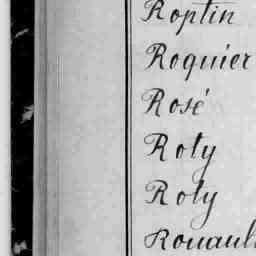 Roptin
Roquier
Rosé
Roty
Roty
Rouault